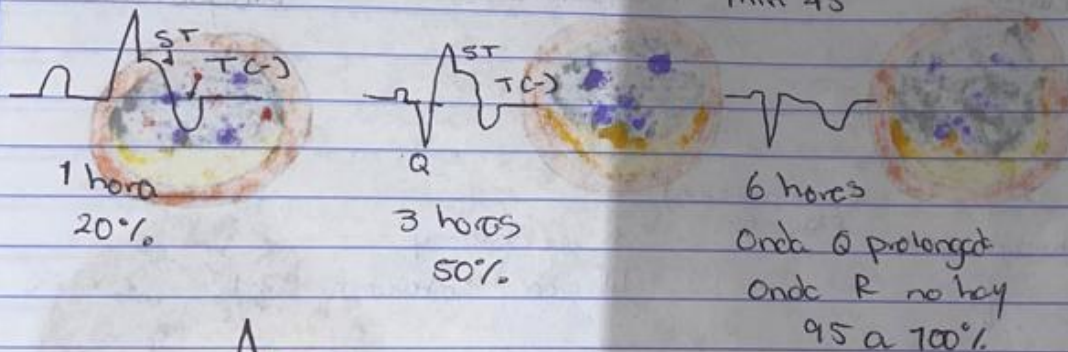 min 45
ST
T(-)
1 hora
20%
ST
T(-)
Q
3 horas
50%
6 horas
Onda Q prolongad
Onda R no hay
95 a 100%